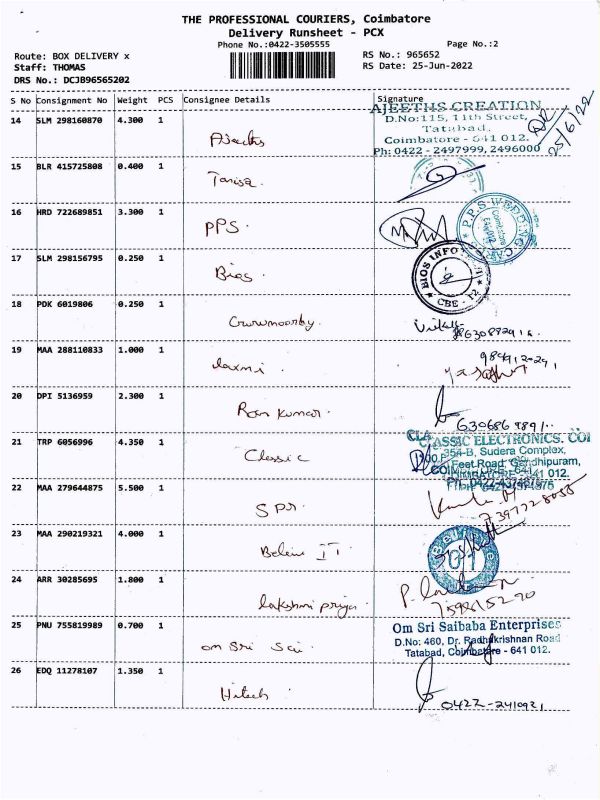 THE PROFESSIONAL COURIERS, Coimbatore
Delivery Runsheet - PCX
Phone No.:0422-3505555
Page No.:2
Route: BOX DELIVERY x
Staff: THOMAS
DRS No.: DCJB96565202
RS No.: 965652
RS Date: 25-Jun-2022
S No Consignment No Weight PCS Consignee Details Signature
14 SLM 298160870 4.300 1
AJEETHS CREATION
D.No:115, 11th Street,
Tatabad,
Coimbatore - 641 012.
Ph: 0422 - 2497999, 2496000
25/6/22
15 BLR 415725808 0.400 1
16 HRD 722689851 3.300 1 PPS.
P.P.S WEDDING CARD
17 SLM 298156795 0.250 1 Bios.
BIOS INFO
CBE - 12
18 PDK 6019806 0.250 1
19 MAA 288110833 1.000 1 laxmi.
20 DPI 5136959 2.300 1 Ram Kumar.
21 TRP 6056996 4.350 1 Classic
CLASSIC ELECTRONICS. COI
354-B, Sudera Complex,
100 Feet Road, Gandhipuram,
COIMBATORE - 641 012.
22 MAA 279644875 5.500 1 SPS.
23 MAA 290219321 4.000 1
24 ARR 30285695 1.800 1 lakshmi priya.
25 PNU 755819989 0.700 1 om Sri Sai.
Om Sri Saibaba Enterprises
D.No: 460, Dr. Radhakrishnan Road
Tatabad, Coimbatore - 641 012.
26 EDQ 11278107 1.350 1 Hitech.
0422-2410921